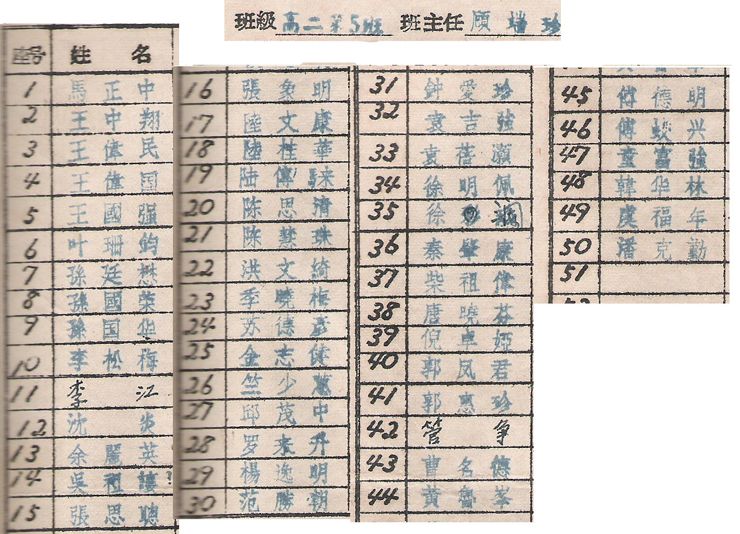 班級 高二第5班 班主任 顾瑞珍
座号 姓名
1 馬正中
2 王中翔
3 王偉民
4 王偉国
5 王國强
6 叶珊鈞
7 孫廷懋
8 孫國荣
9 孫国华
10 李松梅
11 李江
12 沈炎
13 余麗英
14 吳祖讓?
15 張思聰
16 張象明
17 陸文康
18 陸桂華
19 陆傳騋
20 陈思清
21 陈慧珠
22 洪文绮
23 季曉梅
24 苏德彦
25 金志偉
26 竺少蕙
27 邱茂中
28 罗来升
29 楊逸明
30 范勝朝
31 鈡愛珍
32 袁吉強
33 袁蓓灏
34 徐明佩
35 徐
36 秦肇康
37 柴祖偉
38 唐曉芬
39 倪卓婭
40 郭凤君
41 郭惠珍
42 管争
43 曹名德
44 黄魯峯
45 傅德明
46 傅蛟兴
47 童富強
48 韓华林
49 虞福年
50 潘克勤
51